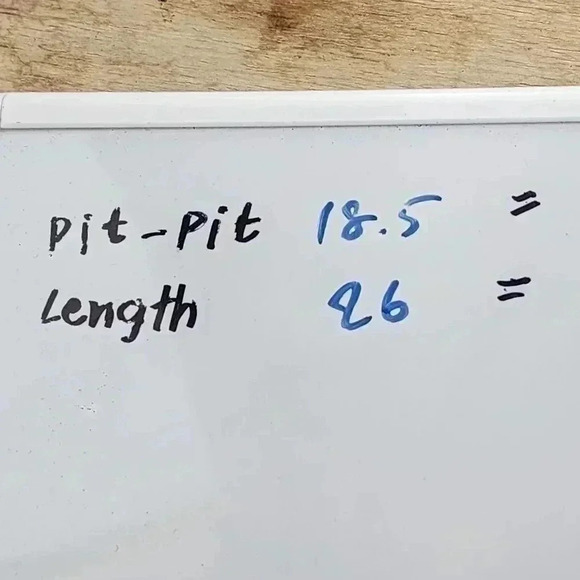 pit-pit 18.5 =
Length 26 =